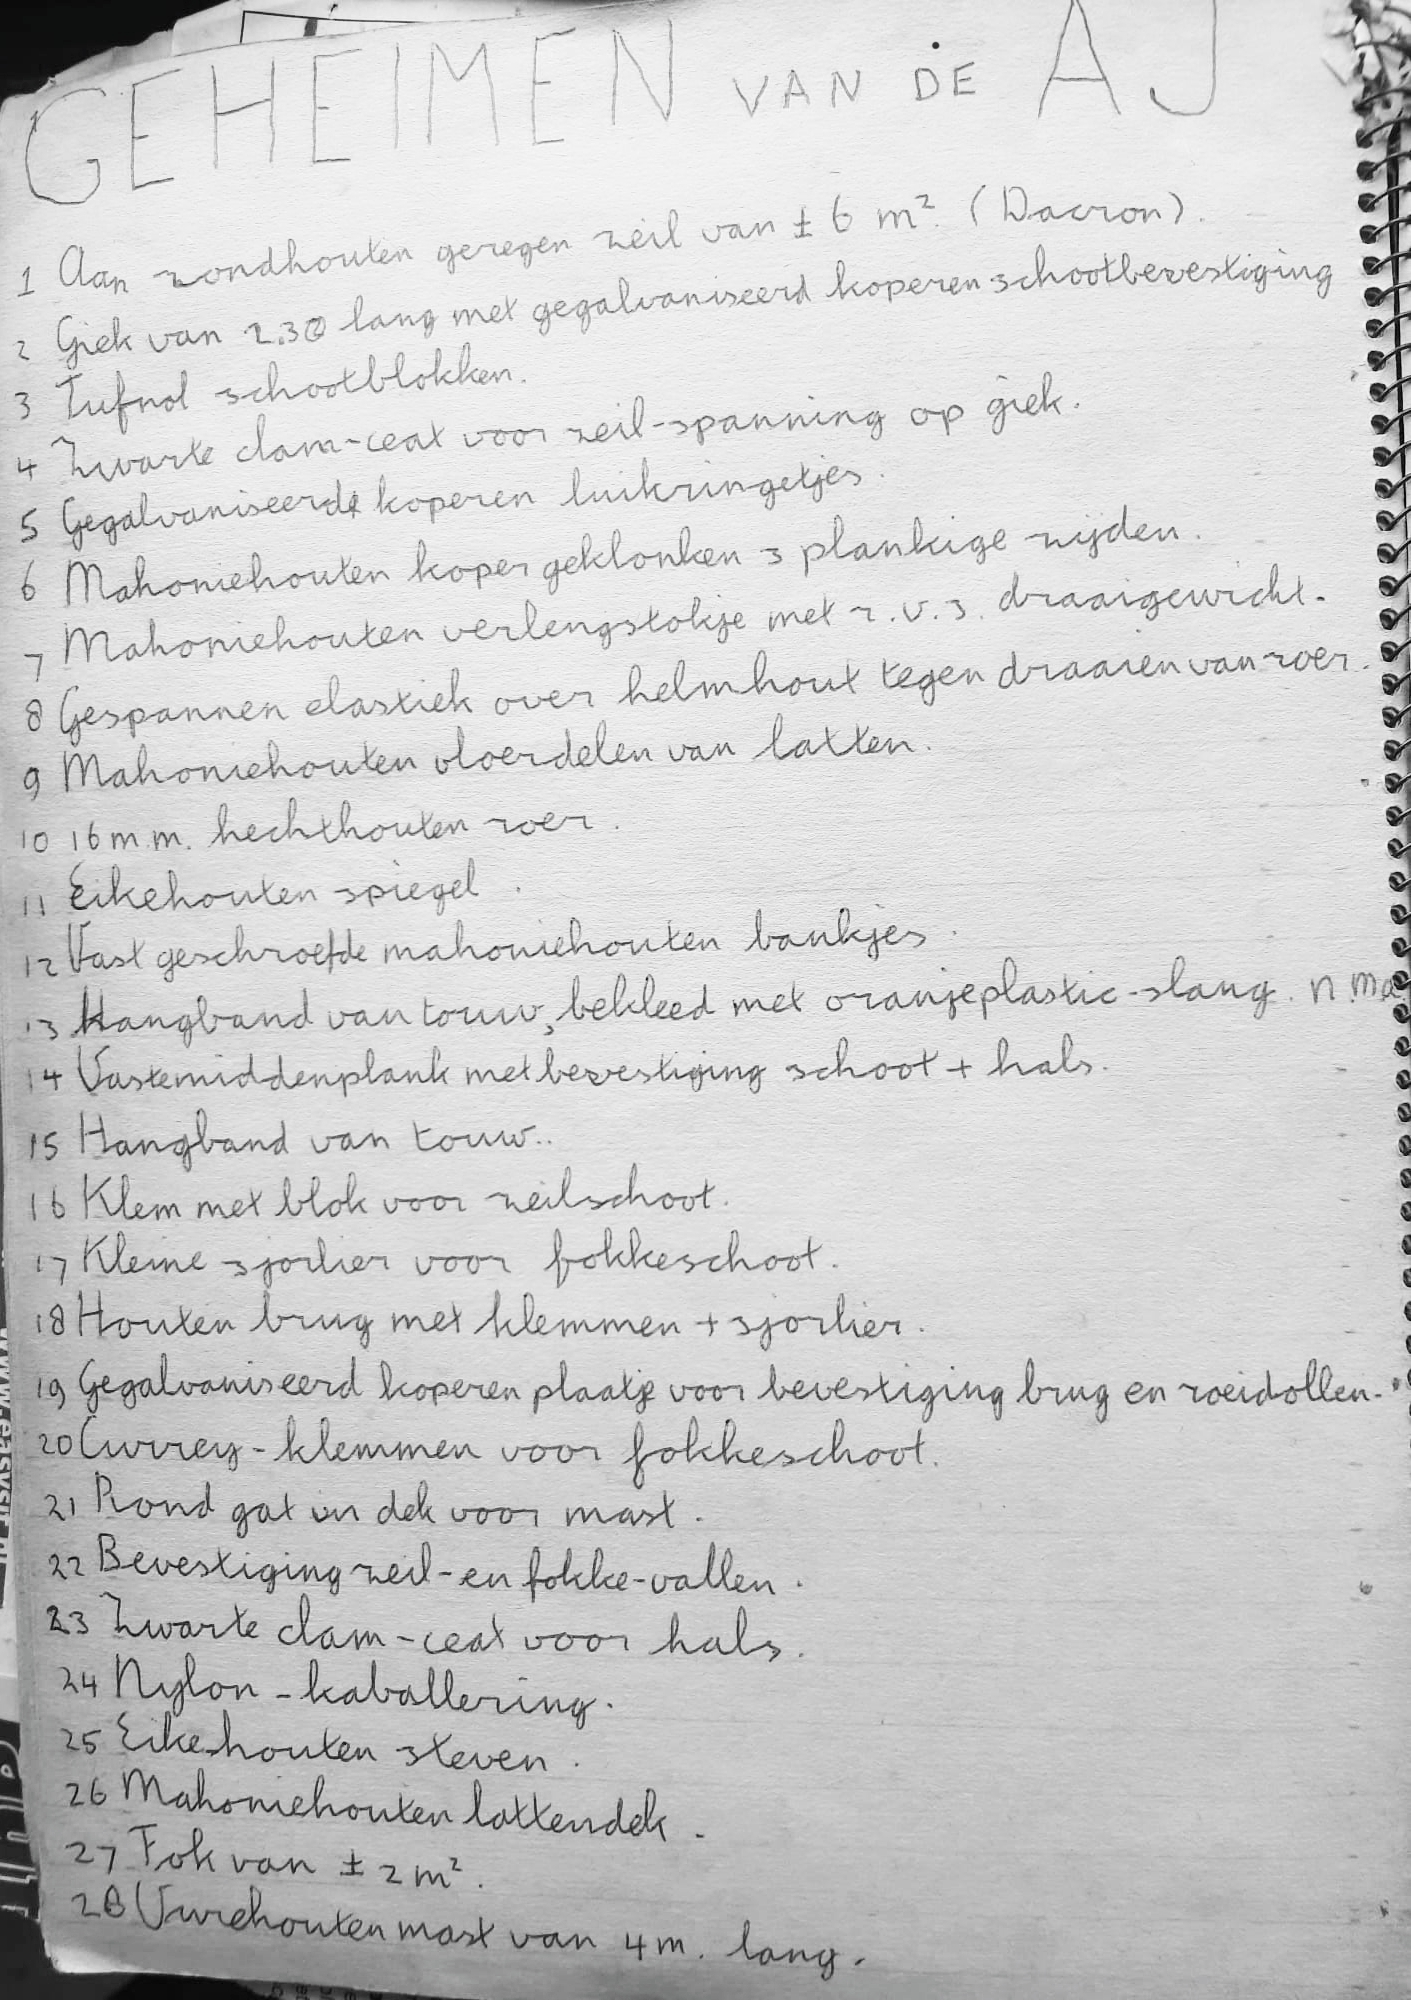 GEHEIMEN VAN DE AJ
1 Aan rondhouten geregen zeil van ± 6 m². (Dacron).
2 Giek van 2.30 lang met gegalvaniseerd koperen schootbevestiging
3 Tufnol schootblokken.
4 Zwarte clam-ceat voor zeil-spanning op giek.
5 Gegalvaniseerde koperen luikringetjes.
6 Mahoniehouten koper geklonken 3 plankige zijden.
7 Mahoniehouten verlengstokje met r.v.s. draaigewicht.
8 Gespannen elastiek over helmhout tegen draaien van roer.
9 Mahoniehouten vloerdelen van latten.
10 16 m.m. hechthouten roer.
11 Eikehouten spiegel.
12 Vast geschroefde mahoniehouten bankjes.
13 Hangband van touw, bekleed met oranjeplastic-slang.
14 Vastemiddenplank met bevestiging schoot + hals.
15 Hangband van touw..
16 Klem met blok voor zeilschoot.
17 Kleine sjorlier voor fokkeschoot.
18 Houten brug met klemmen + sjorlier.
19 Gegalvaniseerd koperen plaatje voor bevestiging brug en roeidollen.
20 Currey-klemmen voor fokkeschoot.
21 Rond gat in dek voor mast.
22 Bevestiging zeil-en fokke-vallen.
23 Zwarte clam-ceat voor hals.
24 Nylon-kaballering.
25 Eikehouten steven.
26 Mahoniehouten lattendek.
27 Fok van ± 2 m².
28 Vurehouten mast van 4 m. lang.